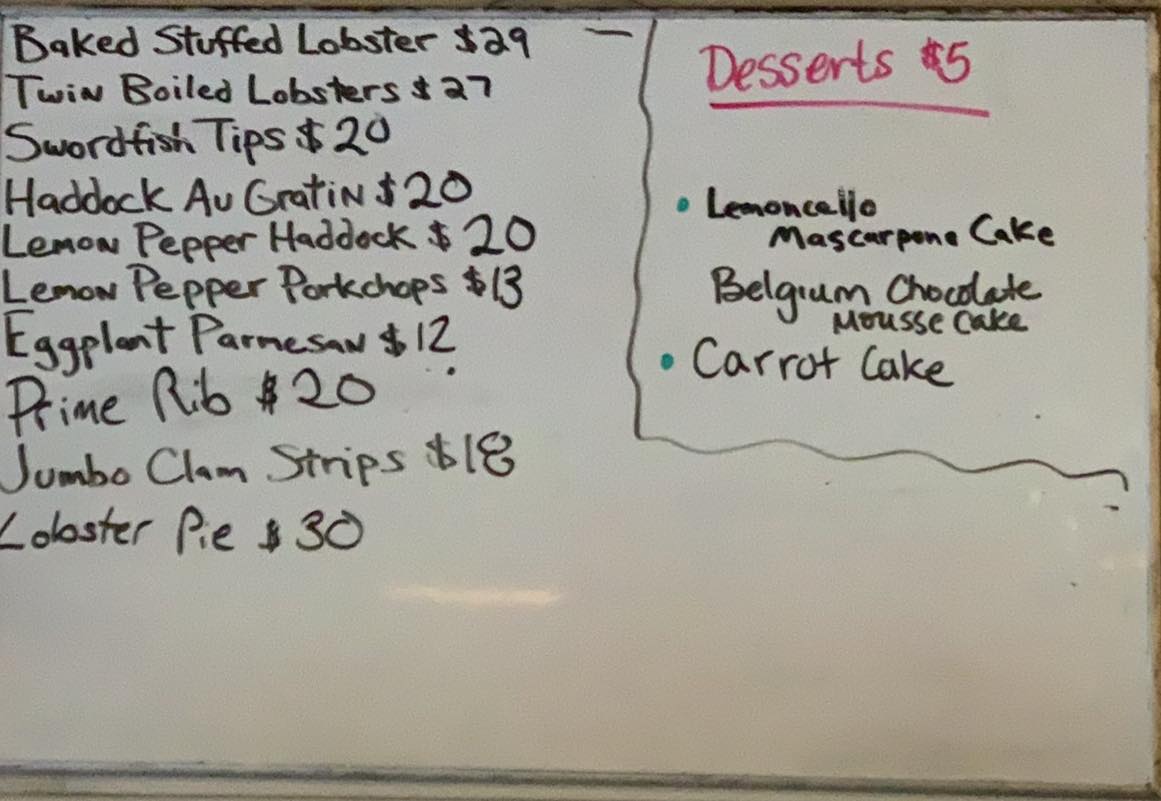 Baked Stuffed Lobster $29
Twin Boiled Lobsters $27
Swordfish Tips $20
Haddock Au Gratin $20
Lemon Pepper Haddock $20
Lemon Pepper Porkchops $13
Eggplant Parmesan $12
Prime Rib $20
Jumbo Clam Strips $18
Lobster Pie $30
Desserts $5
• Lemoncallo
Mascarpone Cake
Belgium Chocolate
Mousse Cake
• Carrot Cake